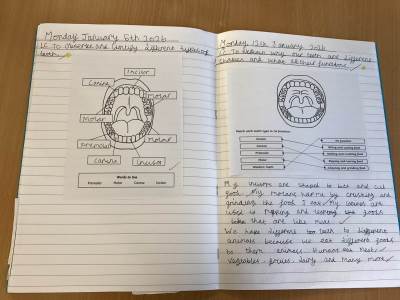 Monday January 5th 2026
LC To observe and identify different types of
teeth.
Incisor
Canine
Molar
Molar
Molar
Molar
Premolar
Canine
Incisor
Words to Use
Premolar Molar Canine Incisor
Monday 12th January 2026
LC To explain why our teeth are different
shapes and what is their functions.
Match each tooth type to its function
Incisor
Canine
Premolar
Molar
Wisdom teeth
No function
Biting and cutting food
Ripping and tearing food
My incisors are shaped to bite and cut
food. My molars help me by crushing and
grinding the food I eat. My canines are
used to ripping and tearing the foods
that are like meat.
We have different teeth to different
animals because we eat different foods
to them animals. Humans eat meat,
vegetables, fruits, dairy and many more.